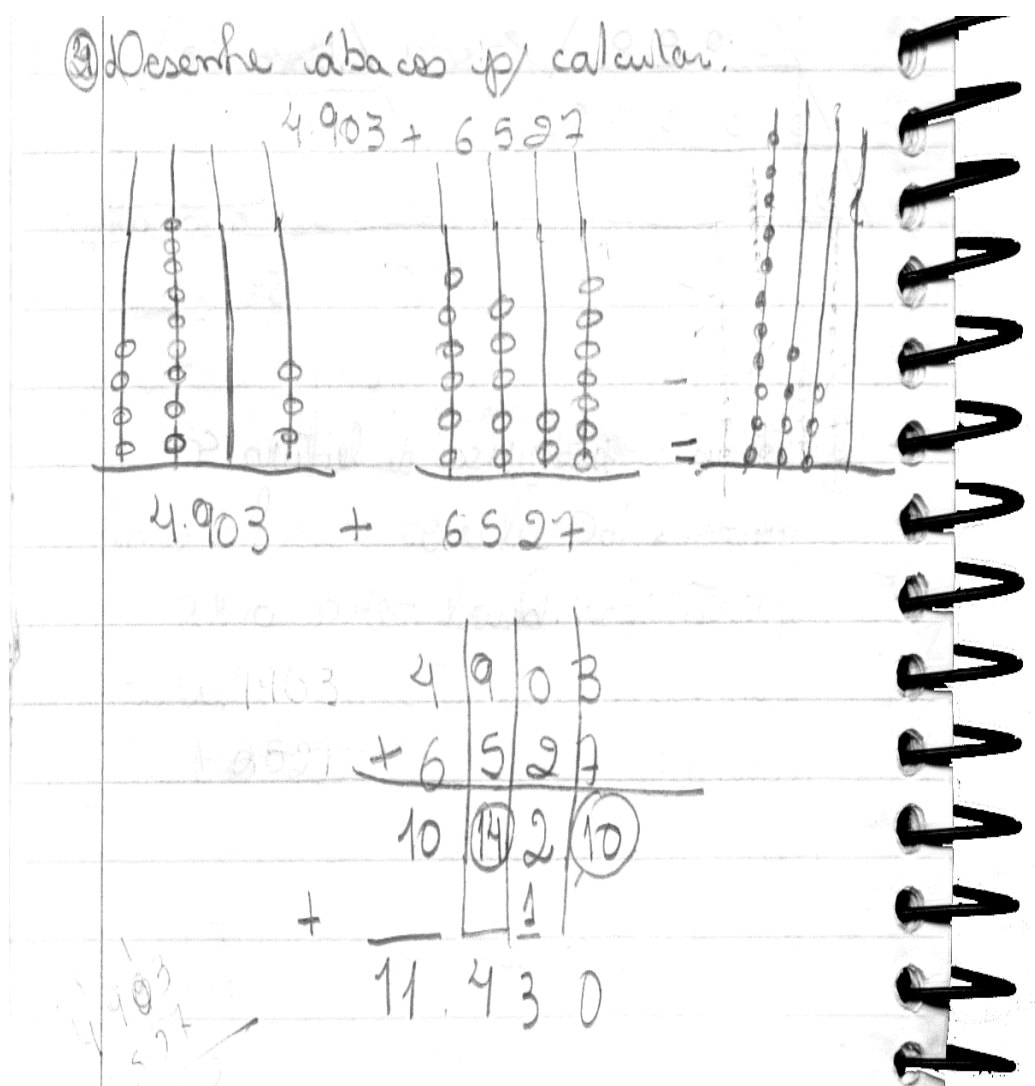 2) Desenhe ábacos p/ calcular.
4.903 + 6527
=
4.903 + 6527
4 9 0 3
+ 6 5 2 7
10 14 2 10
+ 1
11.430